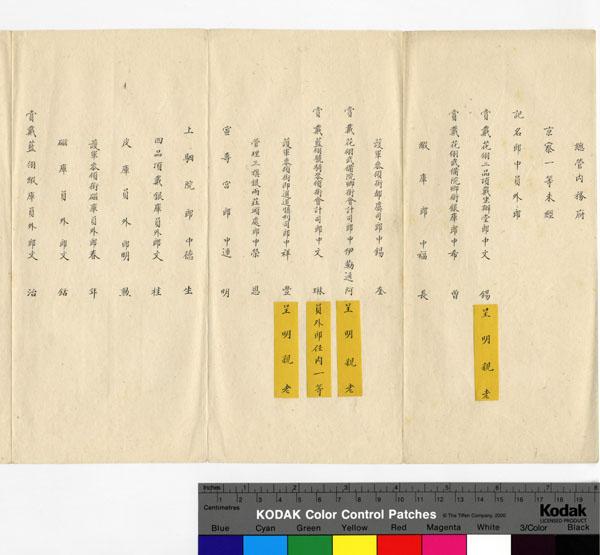 總管内務府
京察一等未經
記名郎中員外郎
賞戴花翎二品頂戴坐辦堂郎中文 錫 呈明親老
賞戴花翎武備院卿銜銀庫郎中希 曾
緞庫郎中福 長
護軍參領銜都虞司郎中錫 奎
賞戴花翎武備院卿銜會計司郎中伊勒通阿 呈明親老
賞戴藍翎護軍參領銜會計司郎中文 琳 員外郎任内一等
護軍參領銜郎中慎刑司郎中祥 豐 呈明親老
管理三旗銀兩莊頭處郎中榮 恩
寧壽宮郎中連 明
上駟院郎中德 生
四品頂戴銀庫員外郎文 桂
皮庫員外郎明 勲
護軍參領銜磁庫員外郎春 年
磁庫員外郎文 铦
賞戴藍翎緞庫員外郎文 治
Inches 1 2 3 4 5 6 7 8
Centimetres 1 2 3 4 5 6 7 8 9 10 11 12 13 14 15 16 17 18 19
KODAK Color Control Patches © The Tiffen Company, 2000 Kodak
LICENSED PRODUCT
Blue Cyan Green Yellow Red Magenta White 3/Color Black